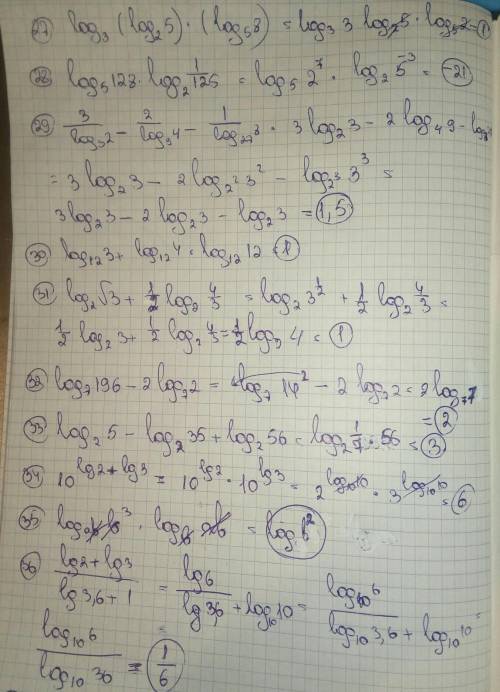 27) log₃ (log₂5) · (log₅8) = log₃ 3 log₂5 · log₅2 = 1
28) log₅128 · log₂ 1/125 = log₅ 2⁷ · log₂ 5⁻³ = -21
29) 3/log₃2 - 2/log₉4 - 1/log₂₇8 · 3 log₂3 - 2 log₄9 - log
= 3 log₂3 - 2 log₂² 3² - log₂³ 3³ =
3 log₂3 - 2 log₂3 - log₂3 = 1,5
30) log₁₂3 + log₁₂4 = log₁₂12 = 1
31) log₂√3 + 1/2 log₂ 4/3 = log₂ 3^½ + 1/2 log₂ 4/3 =
1/2 log₂3 + 1/2 log₂ 4/3 = 1/2 log₂ 4 = 1
32) log₇196 - 2 log₇2 = log₇ 14² - 2 log₇2 = 2 log₇7
= 2
33) log₂5 - log₂35 + log₂56 = log₂ 1/7 · 56 = 3
34) 10^(lg2 + lg3) = 10^lg2 · 10^lg3 = 2^log₁₀10 · 3^log₁₀10 = 6
35) = log b²
36) (lg2 + lg3)/(lg3,6 + 1) = lg6/(lg3,6 + log₁₀10) = log₁₀6/(log₁₀3,6 + log₁₀10) =
log₁₀6/log₁₀36 = 1/6